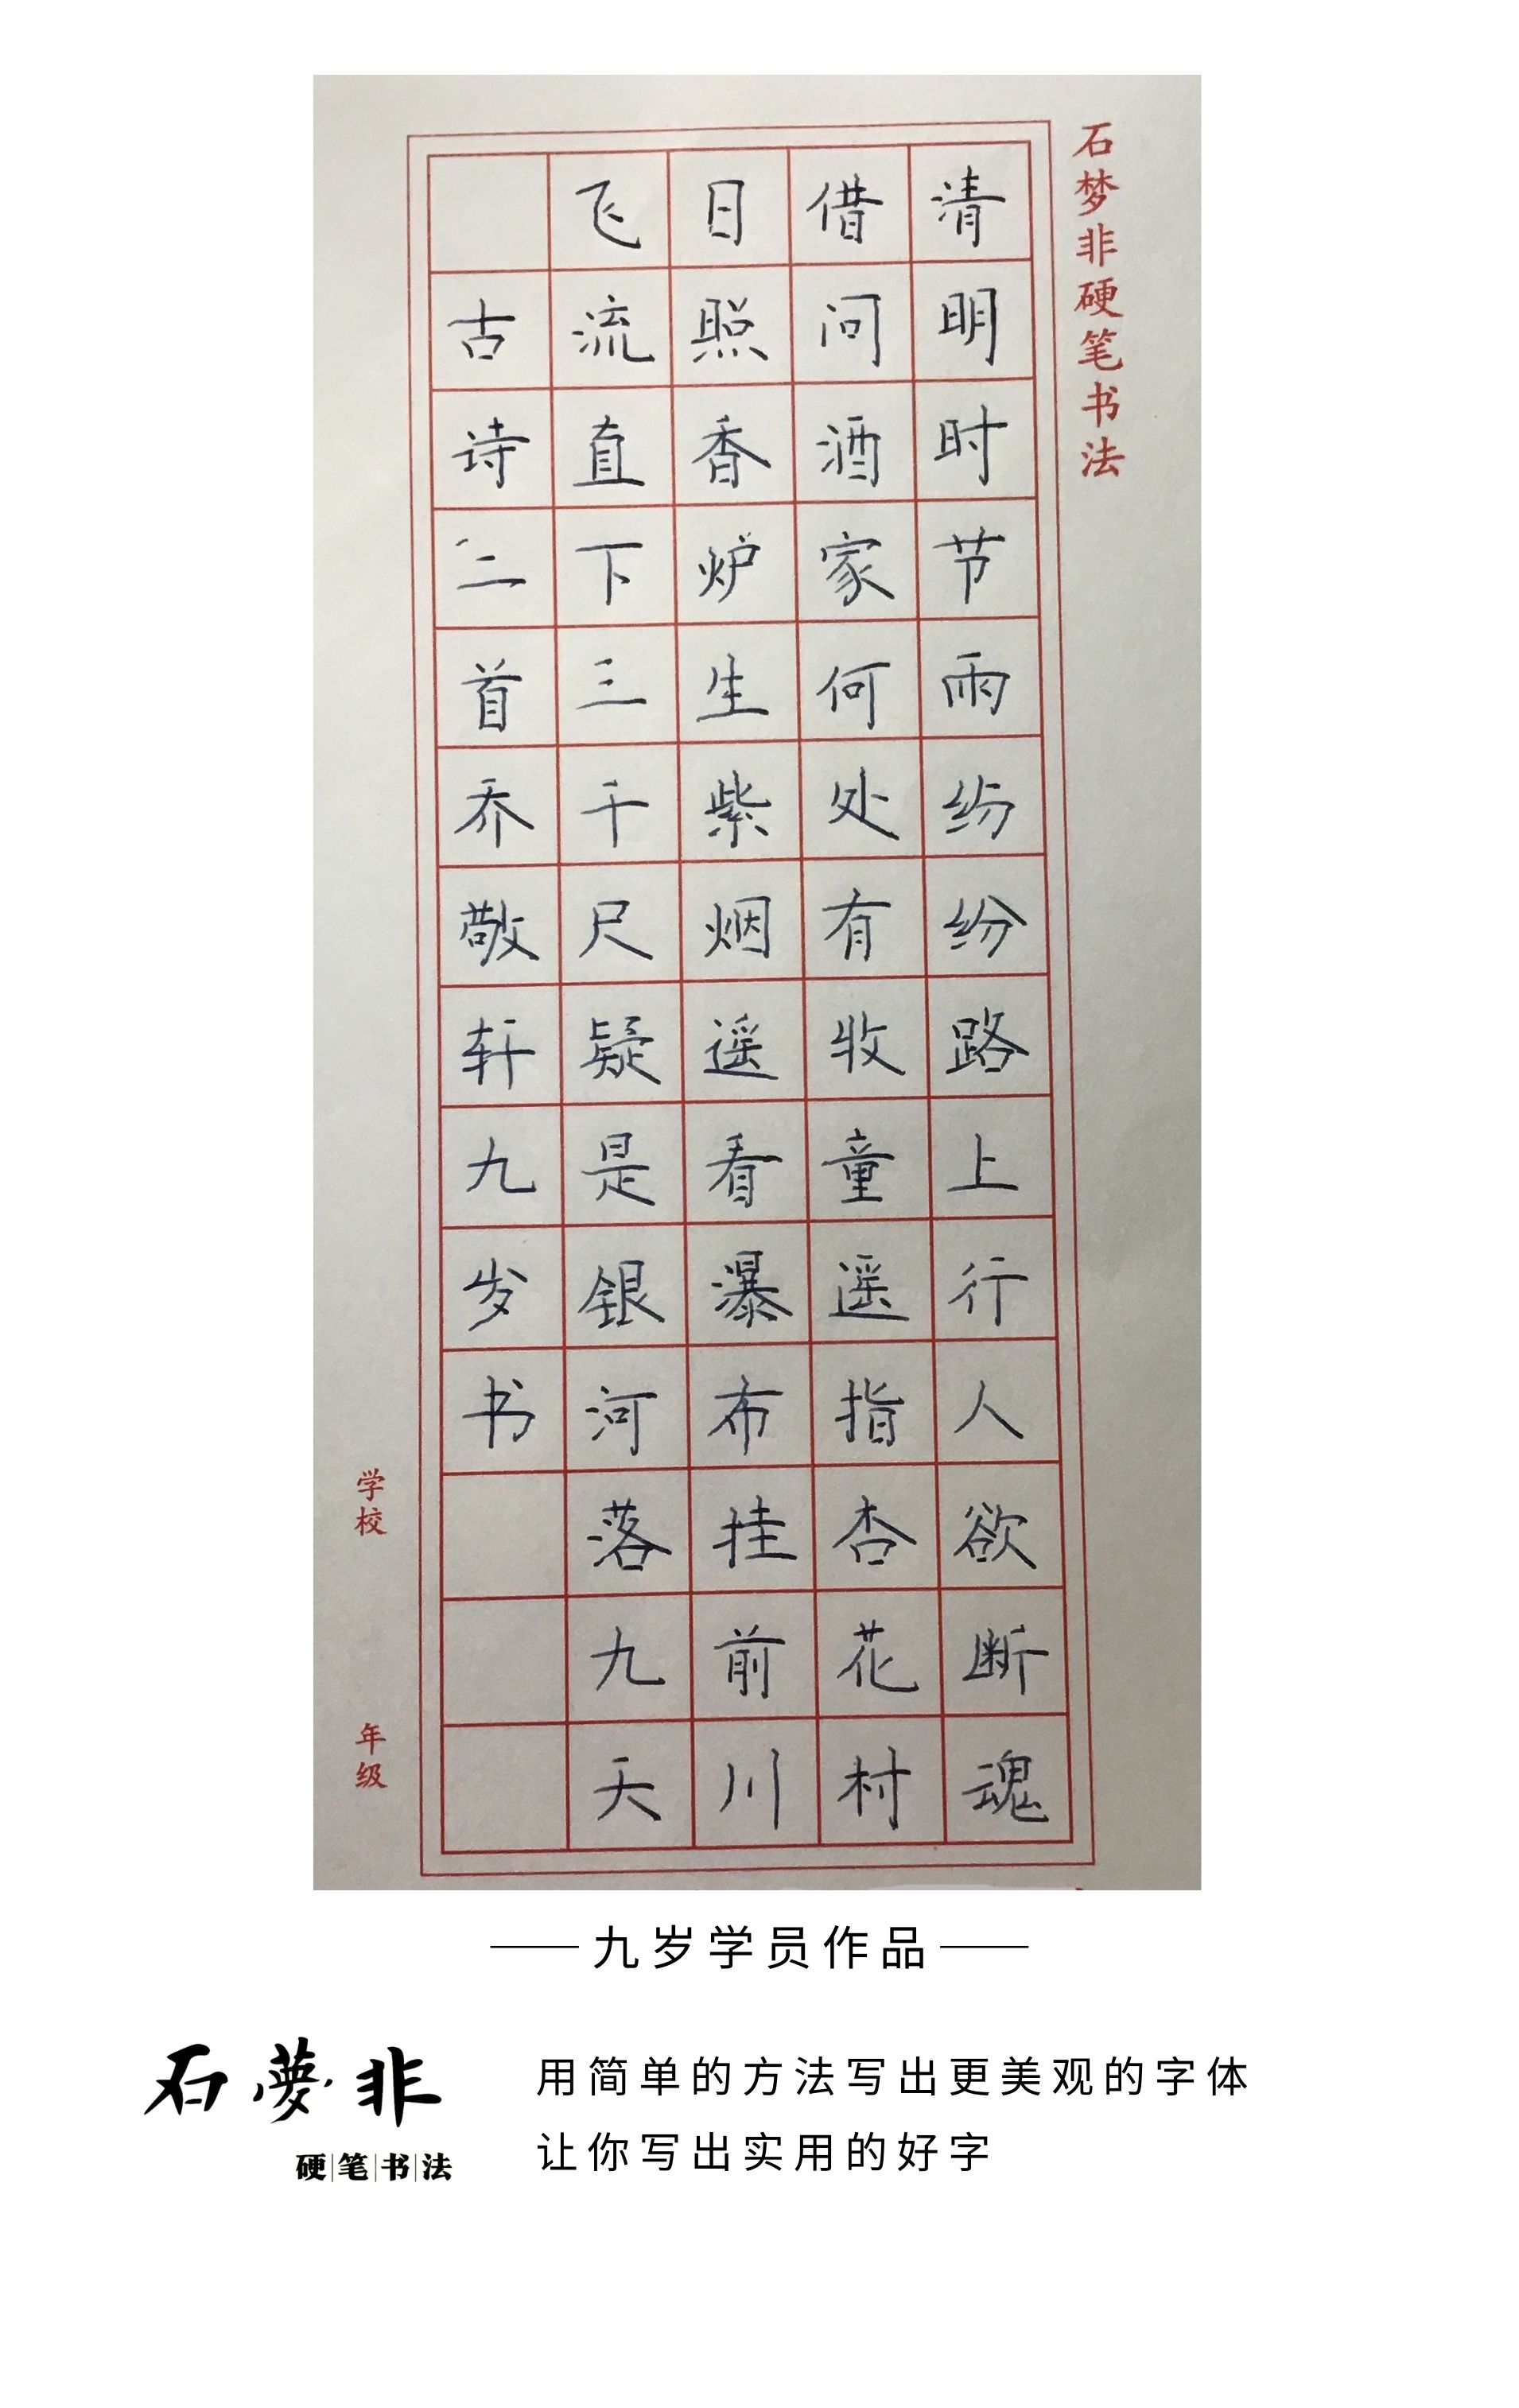 石梦非硬笔书法
清明时节雨纷纷路上行人欲断魂
借问酒家何处有牧童遥指杏花村
日照香炉生紫烟遥看瀑布挂前川
飞流直下三千尺疑是银河落九天
古诗二首乔敬轩九岁书
学校
年级
九岁学员作品
石夢非
硬笔书法
用简单的方法写出更美观的字体
让你写出实用的好字